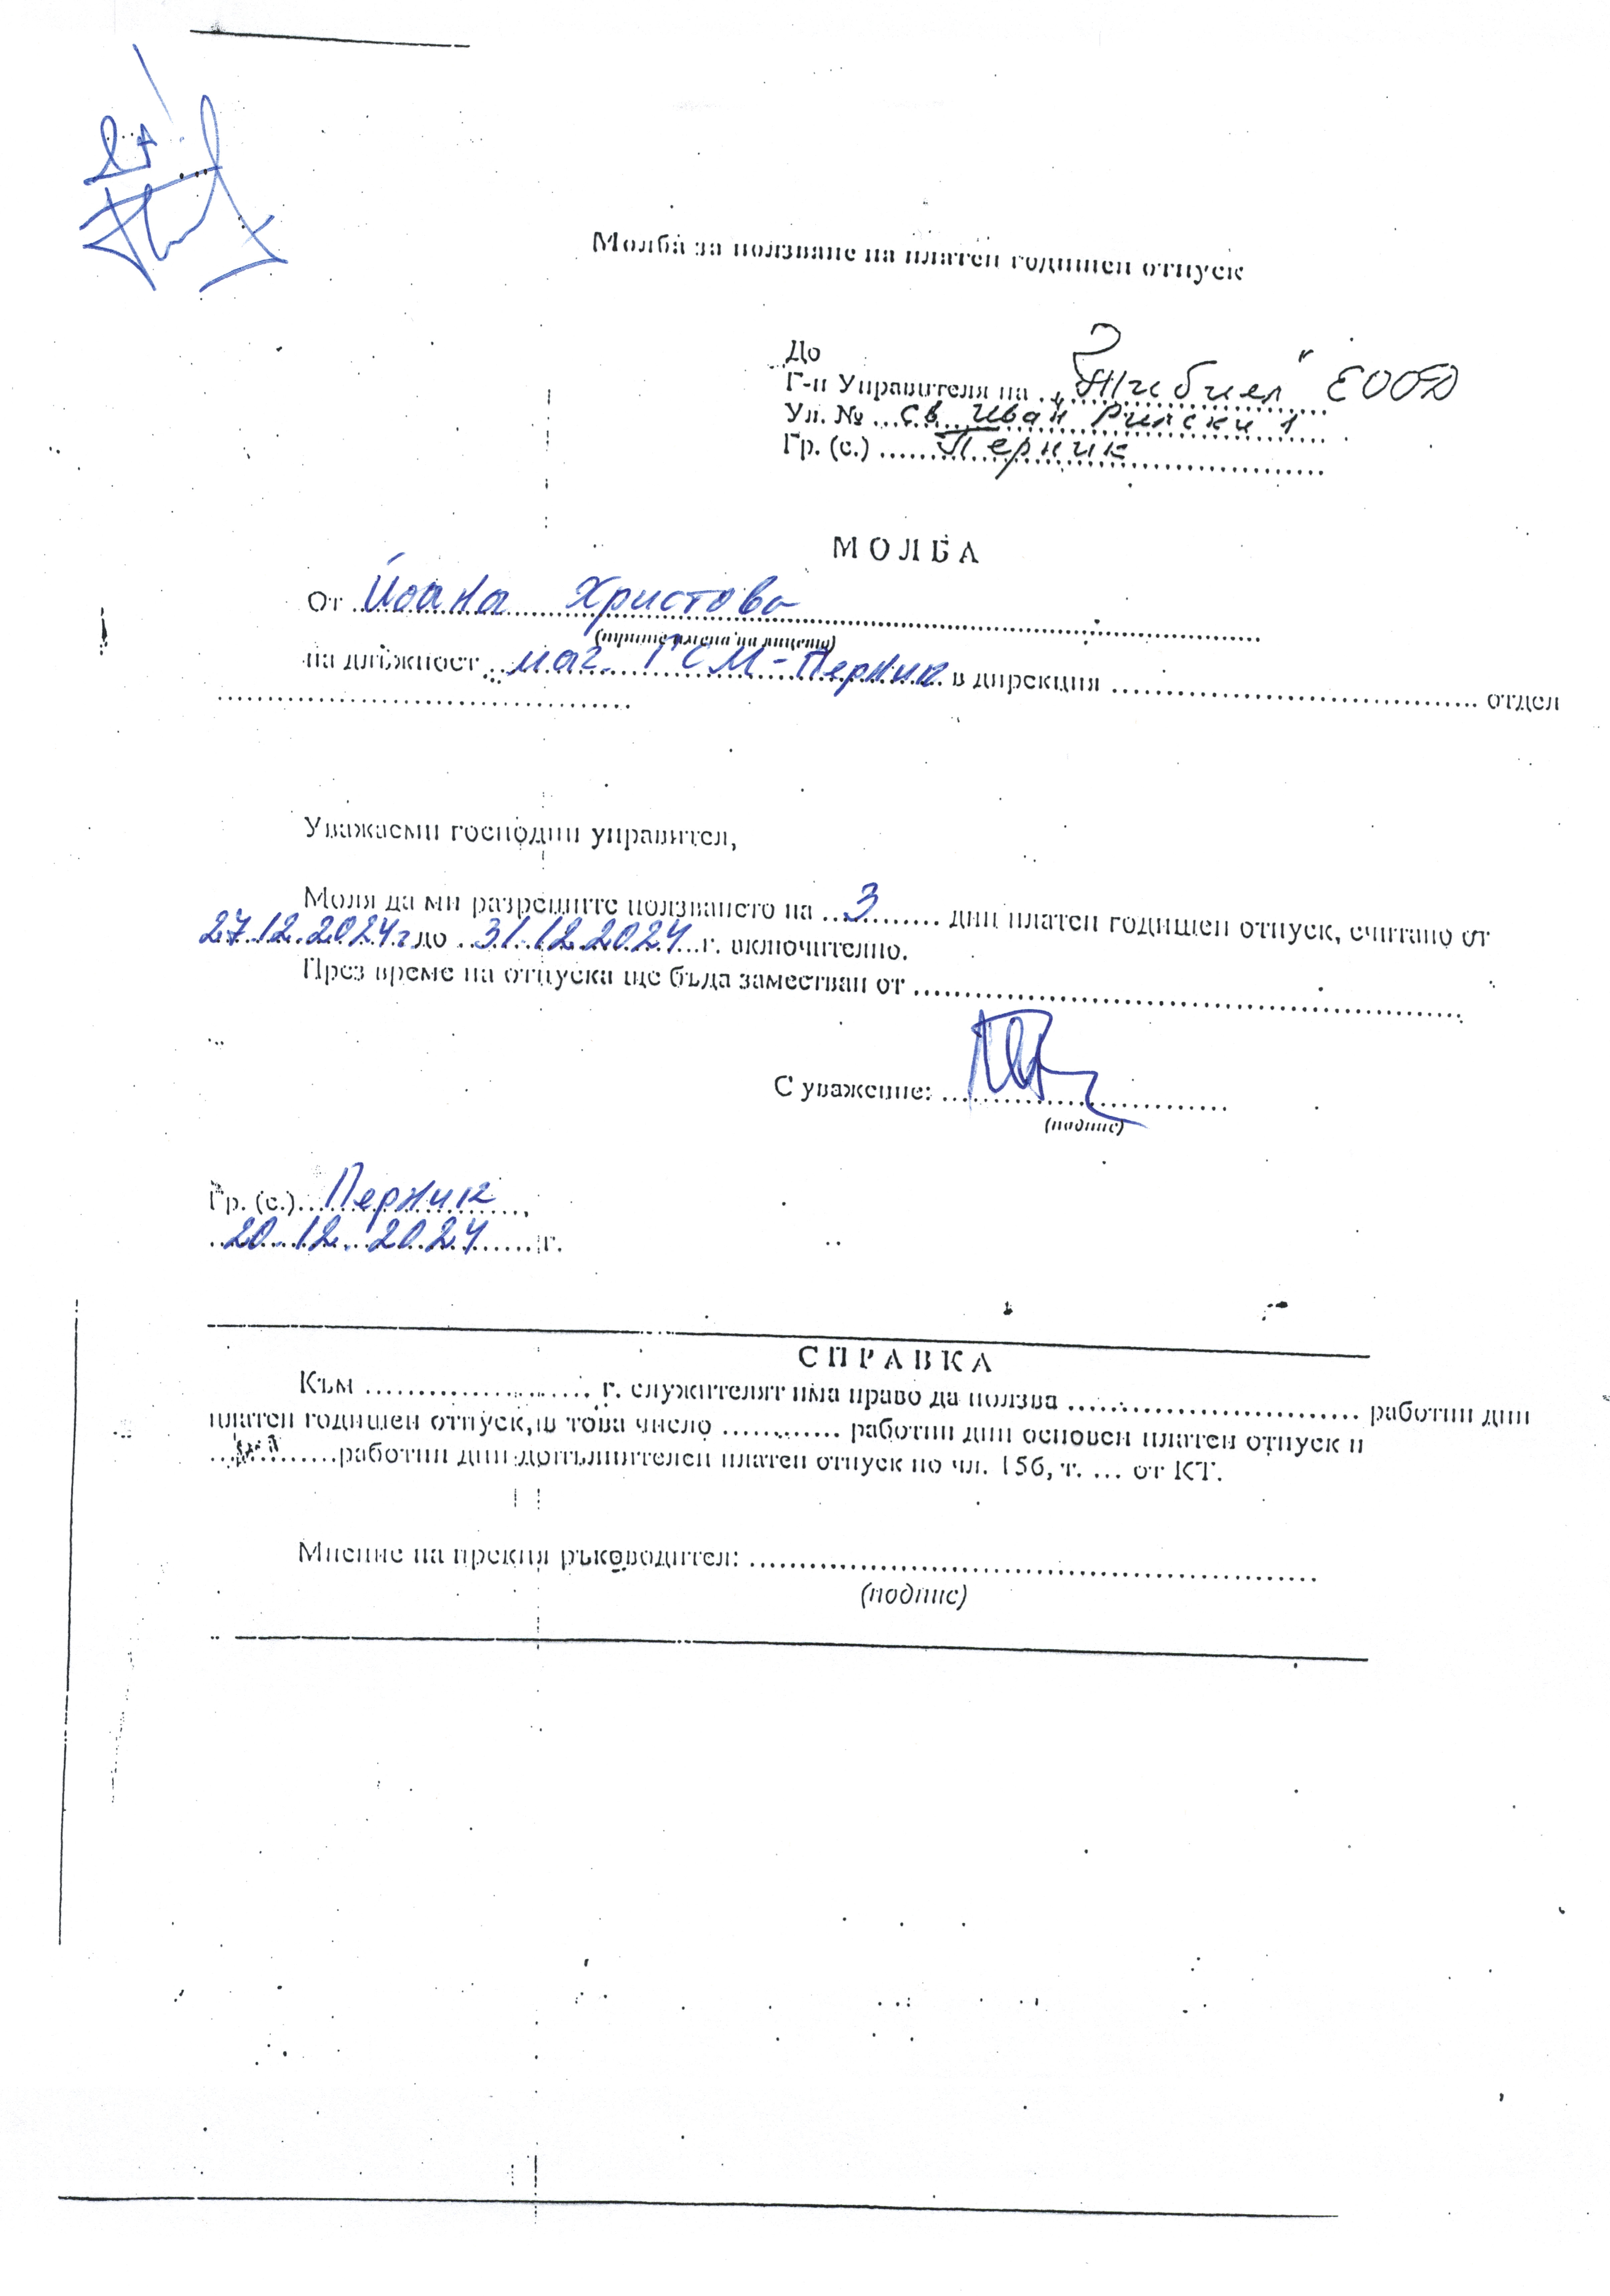 Молба за ползване на платен годишен отпуск
До
Г-н Управителя на „Жибиел" ЕООД
Ул. № Св. Иван Рилски 1
Гр. (с.) Перник
МОЛБА
От Йоана Христова
(трите имена на лицето)
на длъжност маг. ГСМ-Перник в дирекция отдел
Уважаеми господин управител,
Моля да ми разрешите ползването на 3 дни платен годишен отпуск, считано от
27.12.2024 г до 31.12.2024 г. включително.
През време на отпуска ще бъда заместван от
С уважение:
(подпис)
Гр. (с.) Перник,
20.12.2024 г.
СПРАВКА
Към г. служителят има право да ползва работни дни
платен годишен отпуск, в това число работни дни основен платен отпуск и
работни дни допълнителен платен отпуск по чл. 156, т. ... от КТ.
Мнение на прекия ръководител:
(подпис)